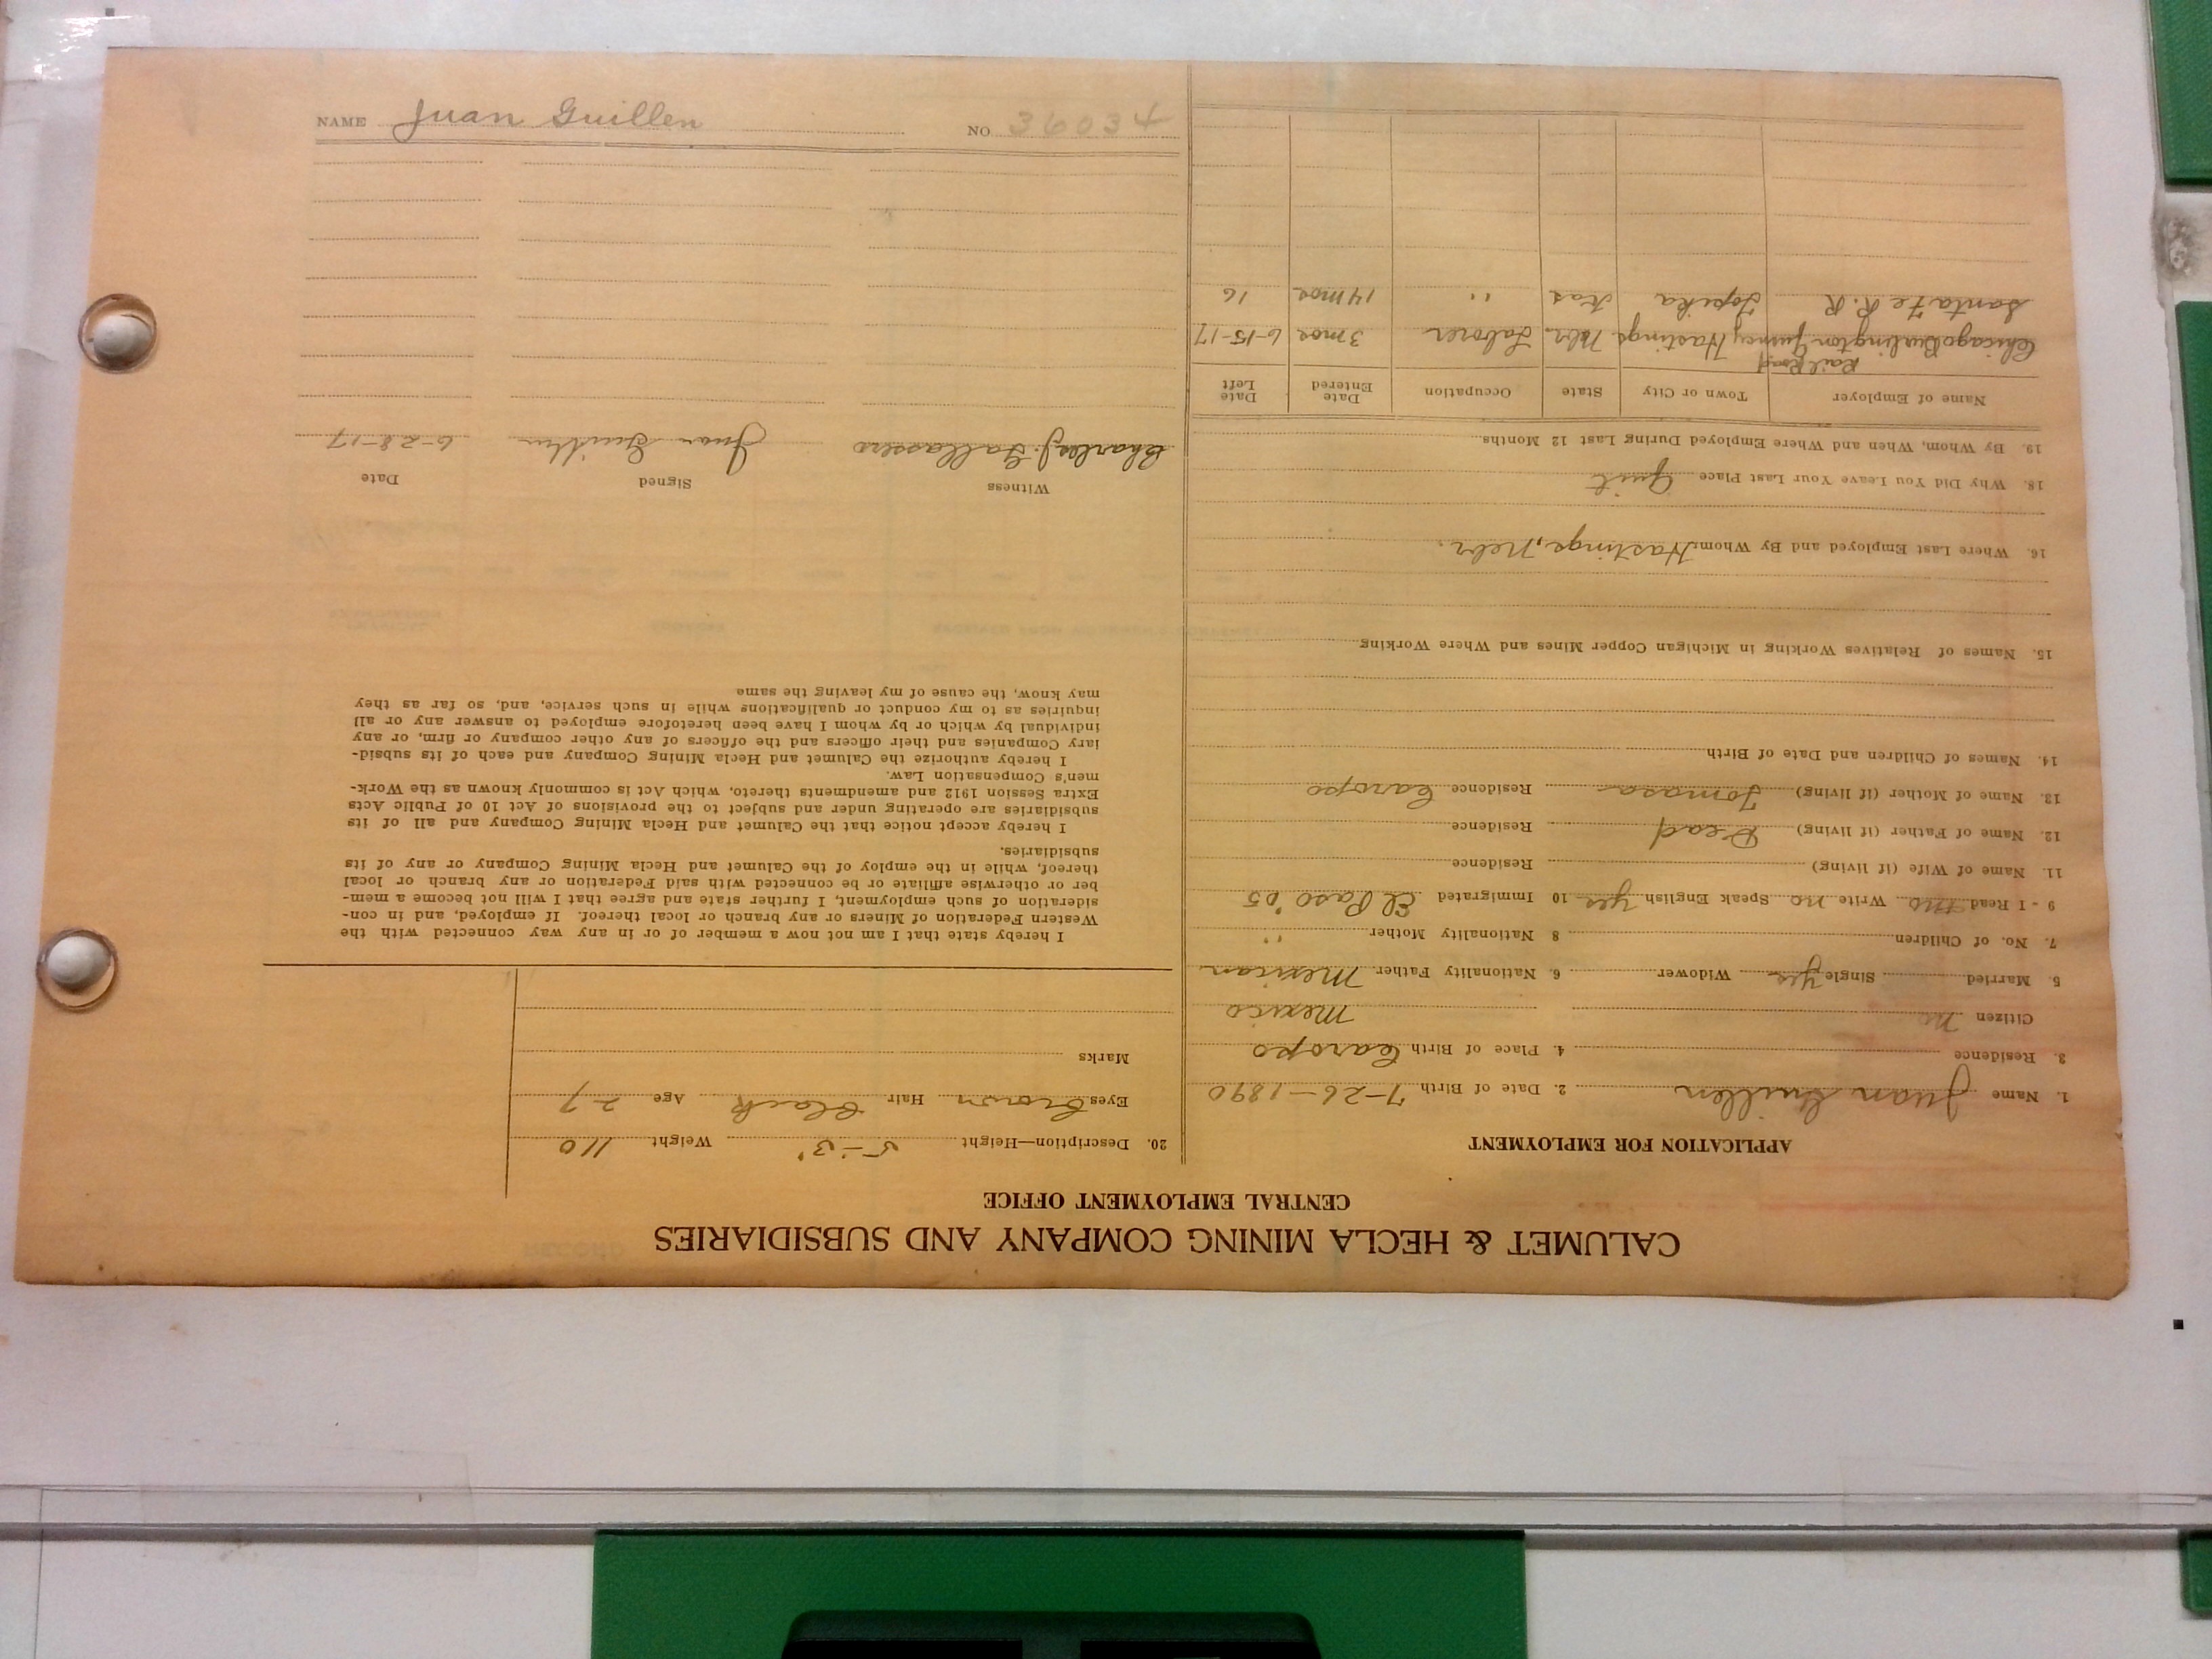 CALUMET & HECLA MINING COMPANY AND SUBSIDIARIES
CENTRAL EMPLOYMENT OFFICE
APPLICATION FOR EMPLOYMENT
1. Name Juan Guillen 2. Date of Birth 7-26-1890
3. Residence 4. Place of Birth Caropo
Citizen no Mexico
5. Married Single yes Widower 6. Nationality Father Mexican
7. No. of Children 8 Nationality Mother "
9 - I Read no Write no Speak English yes 10 Immigrated El Paso '05
11. Name of Wife (if living) Residence
12. Name of Father (if living) Dead Residence
13. Name of Mother (if living) Tomasa Residence Caropo
14. Names of Children and Date of Birth
15. Names of Relatives Working in Michigan Copper Mines and Where Working
16. Where Last Employed and By Whom Hastings, Nebr.
18. Why Did You Leave Your Last Place Quit
19. By Whom, When and Where Employed During Last 12 Months
Name of Employer Town or City State Occupation Date Entered Date Left
Rail Road
Chicago Burlington Quincy Hastings Nebr. Laborer 3 mos 6-15-17
Santa Fe R.R Topeka Kas " 14 mos 16
20. Description—Height 5-3" Weight 110
Eyes brown Hair black Age 27
Marks
I hereby state that I am not now a member of or in any way connected with the
Western Federation of Miners or any branch or local thereof. If employed, and in con-
sideration of such employment, I further state and agree that I will not become a mem-
ber or otherwise affiliate or be connected with said Federation or any branch or local
thereof, while in the employ of the Calumet and Hecla Mining Company or any of its
subsidiaries.
I hereby accept notice that the Calumet and Hecla Mining Company and all of its
subsidiaries are operating under and subject to the provisions of Act 10 of Public Acts
Extra Session 1912 and amendments thereto, which Act is commonly known as the Work-
men's Compensation Law.
I hereby authorize the Calumet and Hecla Mining Company and each of its subsid-
iary Companies and their officers and the officers of any other company or firm, or any
individual by which or by whom I have been heretofore employed to answer any or all
inquiries as to my conduct or qualifications while in such service, and, so far as they
may know, the cause of my leaving the same
Witness Signed Date
Charles J. Juan Guillen 6-28-17
NAME Juan Guillen NO 36034